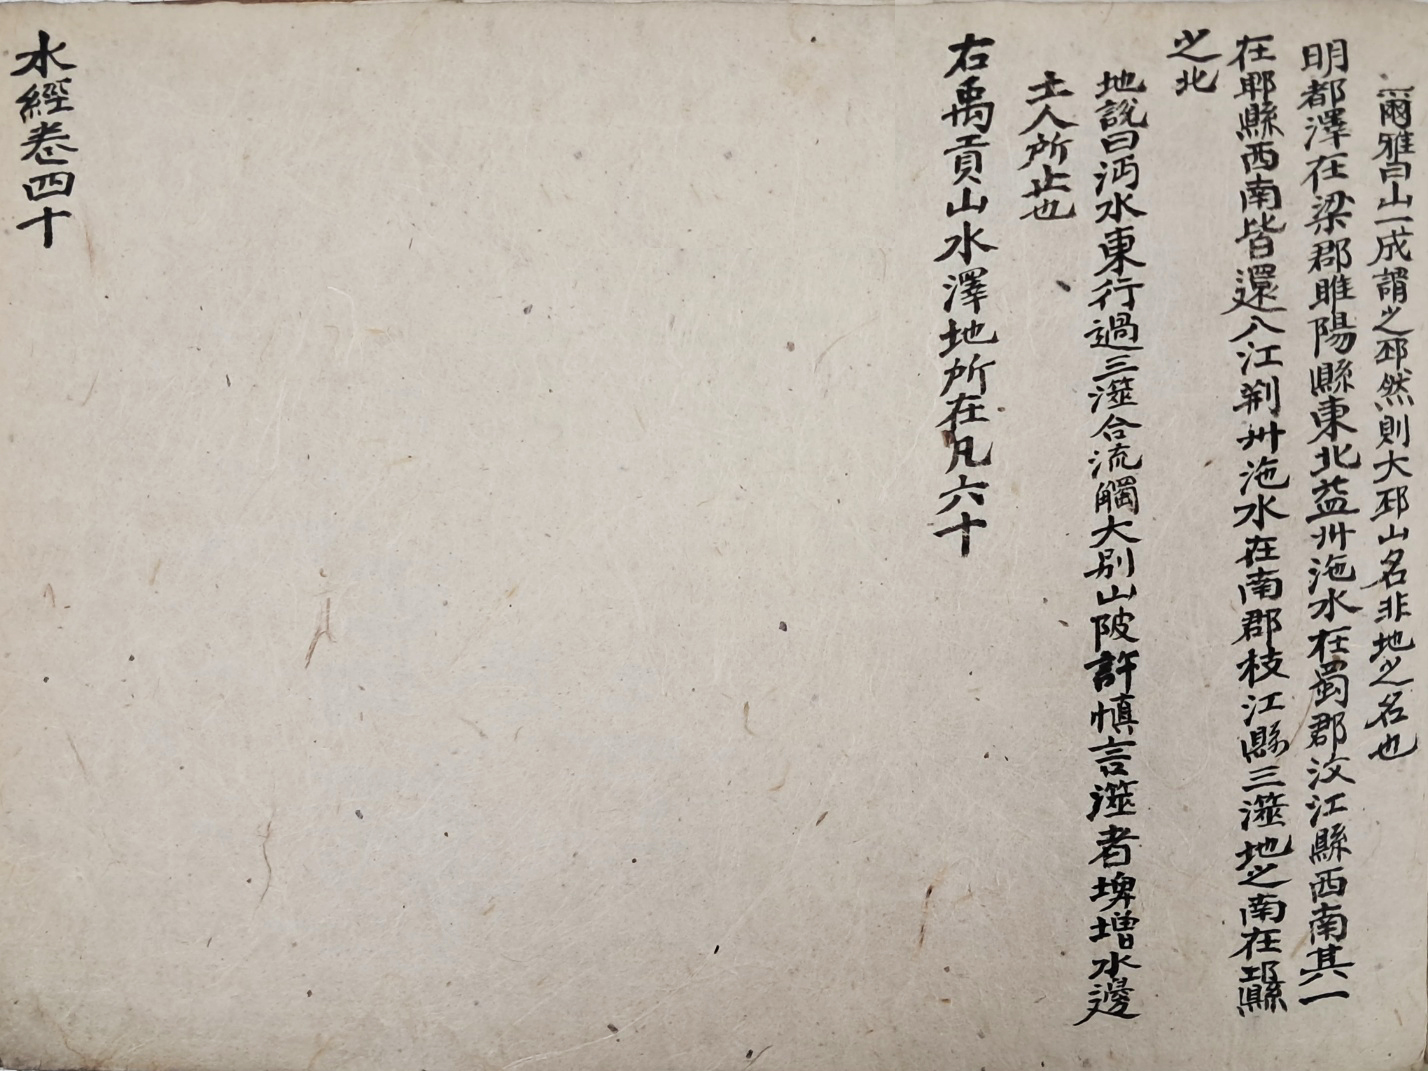 爾雅曰山一成謂之邳然則大邳山名非地之名也
明都澤在梁郡雎陽縣東北益州沲水在蜀郡汶江縣西南其一
在郫縣西南皆還入江荆州沲水在南郡枝江縣三澨地之南在邔縣
之北
地說曰沔水東行過三澨合流觸大別山陂許慎言澨者埤增水邊
土人所止也
右禹貢山水澤地所在凡六十
水經卷四十